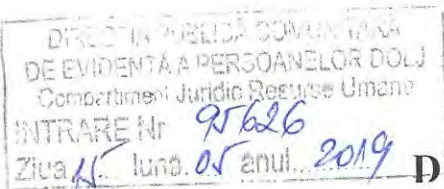 DIRECȚIA PUBLICĂ COMUNITARĂ
DE EVIDENȚĂ A PERSOANELOR DOLJ
Compartiment Juridic Resurse Umane
INTRARE Nr 95626
Ziua 15 luna 05 anul 2019 D